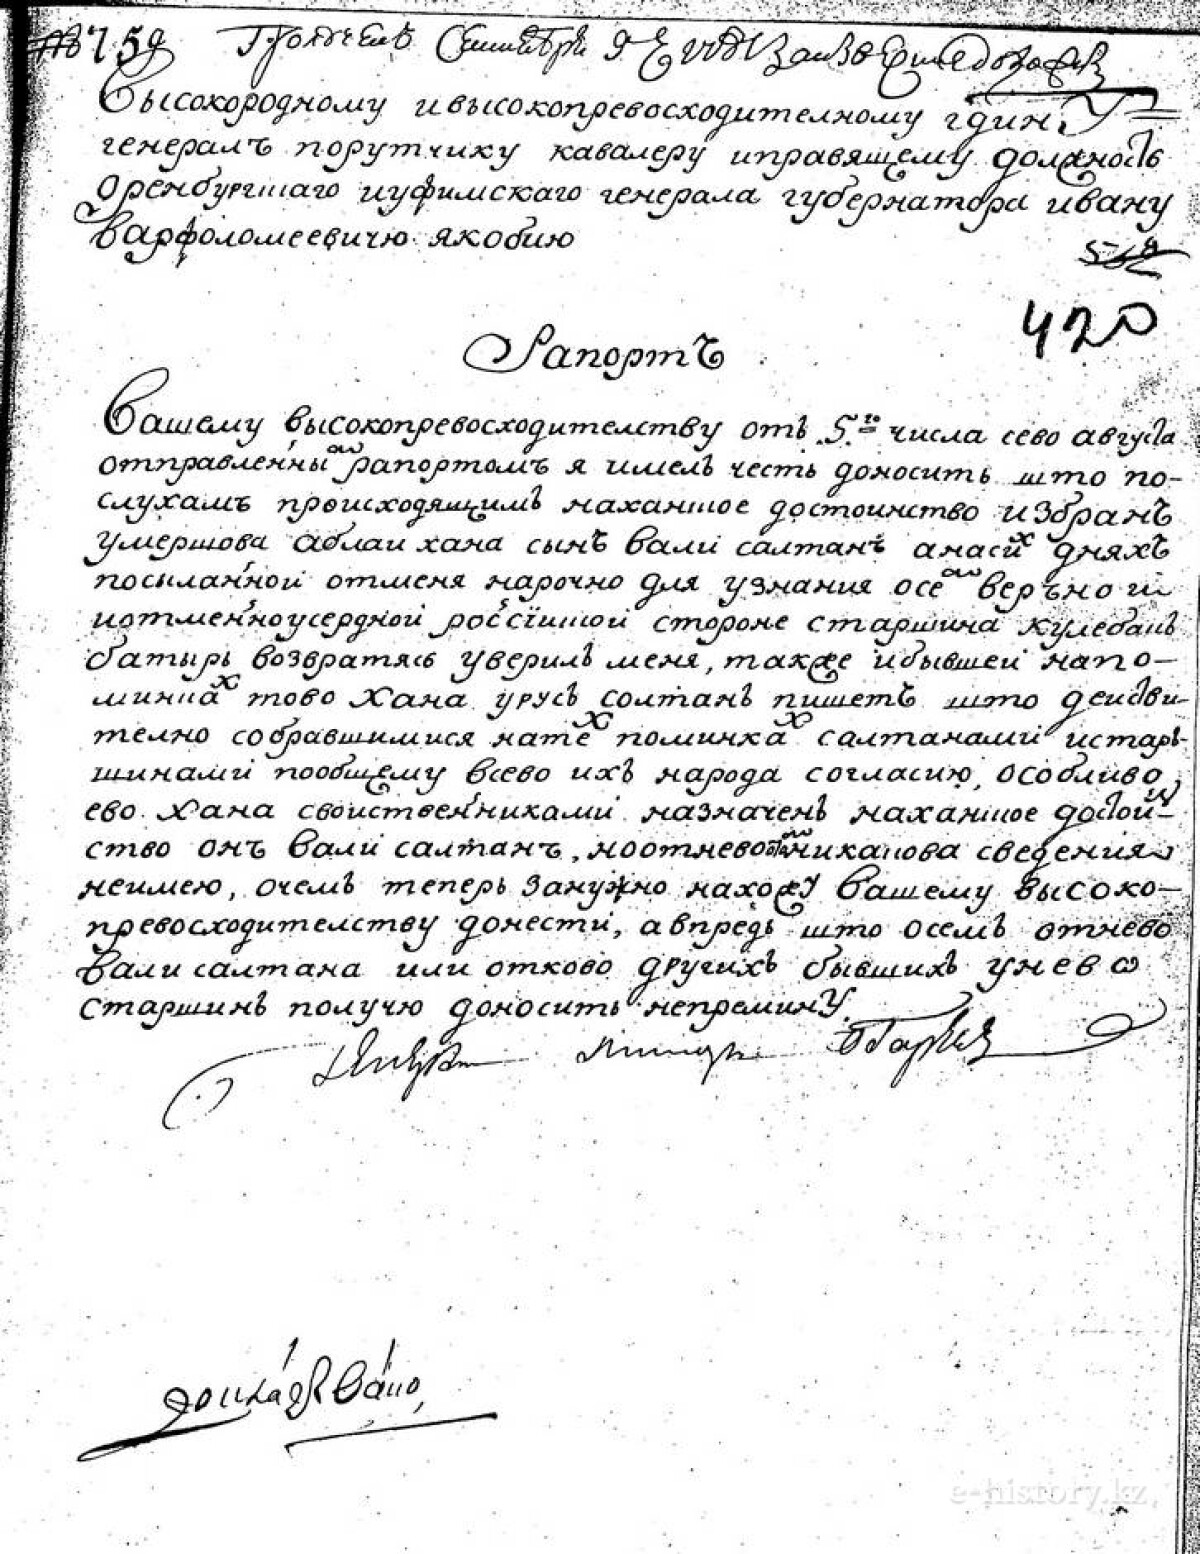 № 759 Полученъ Сентября 9
Высокородному ивысокопревосходителному гдину
генералъ порутчику кавалеру иправящему должность
Оренбургшаго иуфимскаго генерала губернатора ивану
варфоломеевичю якобию
420
Рапортъ
Вашему высокопревосходителству отъ 5го числа сево августа
отправленны рапортомъ я имелъ честь доносить што по-
слухамъ происходящимъ наханшое достоинство избранъ
умершова аблаи хана сынъ вали салтанъ анасих дняхъ
посыланной отменя нарочно для узнания осем веръно и
иотменноусердной россiишой стороне старшина кулебакъ
батырь возвратясь уверилъ меня, также ибывшей напо-
минках тово хана урусъ солтанъ пишетъ што деистви-
телно собравшимися натех поминках салтанами истар-
шинами пообщему всево ихъ народа согласию, особливо
ево хана своиственниками назначенъ наханшое достои-
ство онъ вали салтанъ, ноотнево никакова сведения
неимею, очемъ теперь занужно нахожу вашему высоко-
превосходителству донести, авпредь што осемъ отнево
вали салтана или отково другихъ бывшихъ унево
старшинъ получю доносить непремину.
e-history.kz